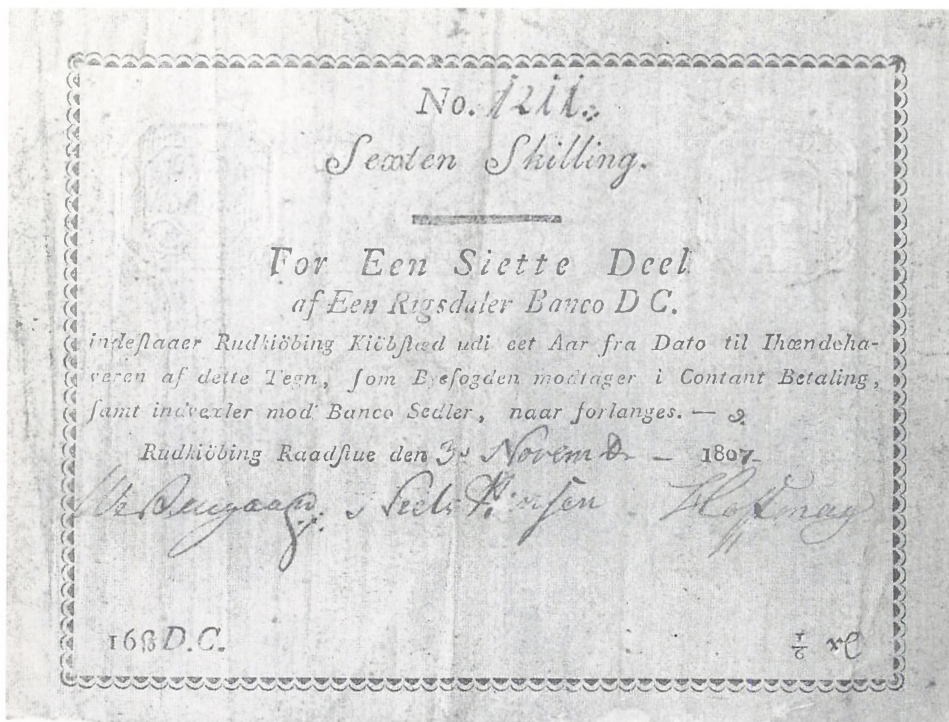 No. 1211.
Sexten Skilling.
For Een Siette Deel
af Een Rigsdaler Banco D C.
indeſtaaer Rudkiöbing Kiöbſtæd udi eet Aar fra Dato til Ihændeha-
veren af dette Tegn, ſom Byefogden modtager i Contant Betaling,
ſamt indvexler mod Banco Sedler, naar forlanges. —
Rudkiöbing Raadſtue den 3 Novembr — 1807
Niels
16 ß D.C.